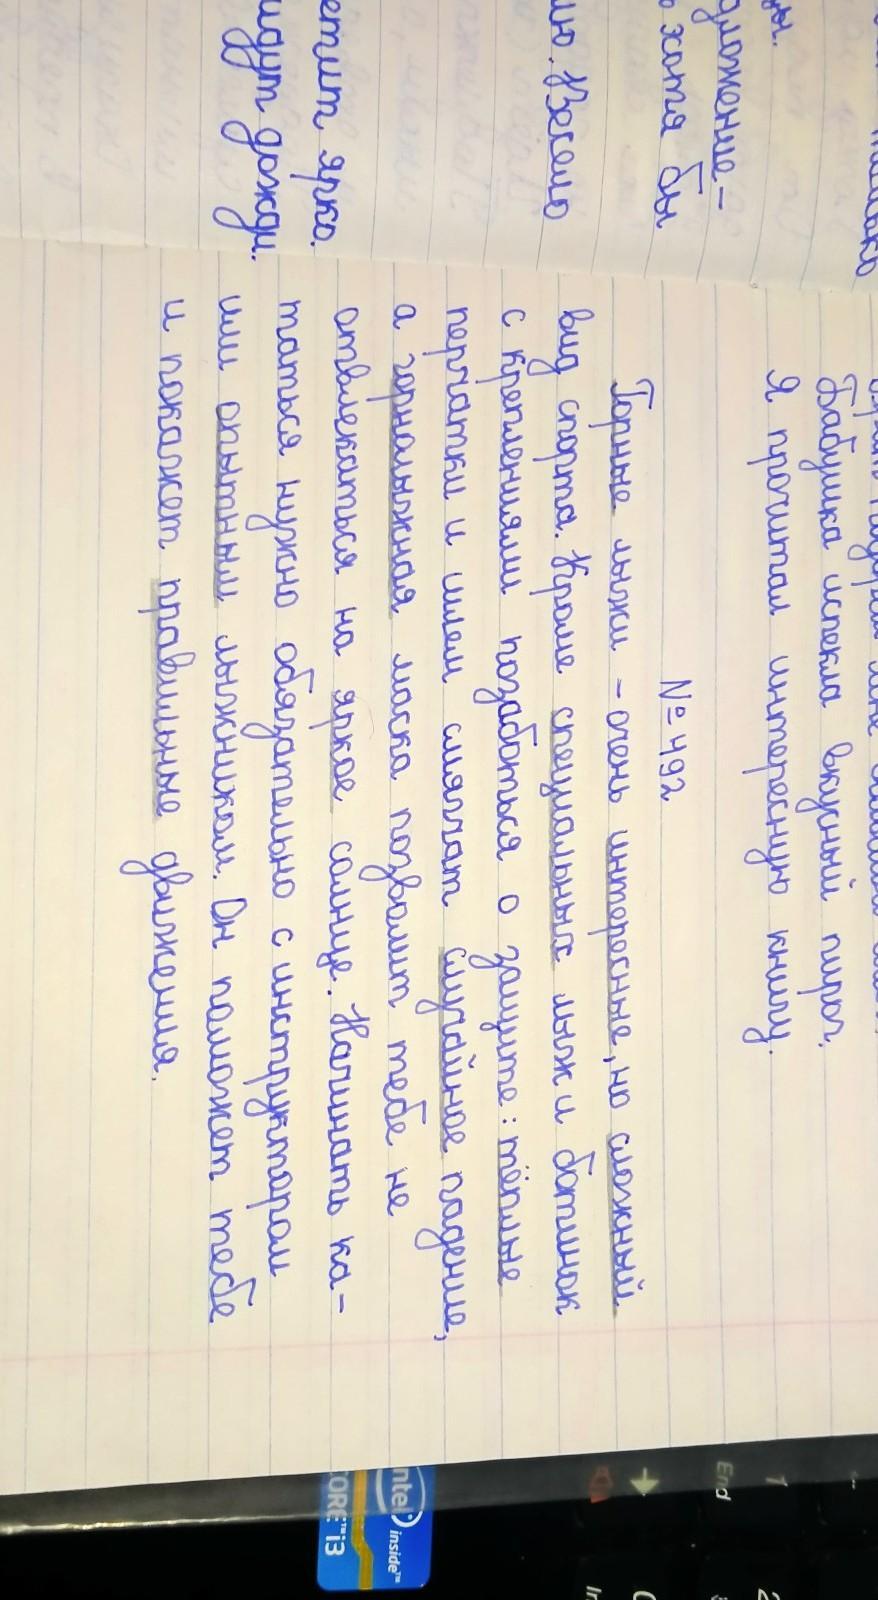 ны.
дложение-
хотя бы
ию. Весело
етит ярко.
идут дожди.
Бабушка испекла вкусный пирог.
Я прочитал интересную книгу.
№492
Горные лыжи - очень интересные, но сложный
вид спорта. Кроме специальных лыж и ботинок
с креплениями позаботься о защите: тёплые
перчатки и шлем смягчат случайное падение,
а горнолыжная маска позволит тебе не
отвлекаться на яркое солнце. Начинать ка-
таться нужно обязательно с инструктором
или опытным лыжником. Он поможет тебе
и покажет правильные движения.
intel inside™
CORE™ i3
End
1
2